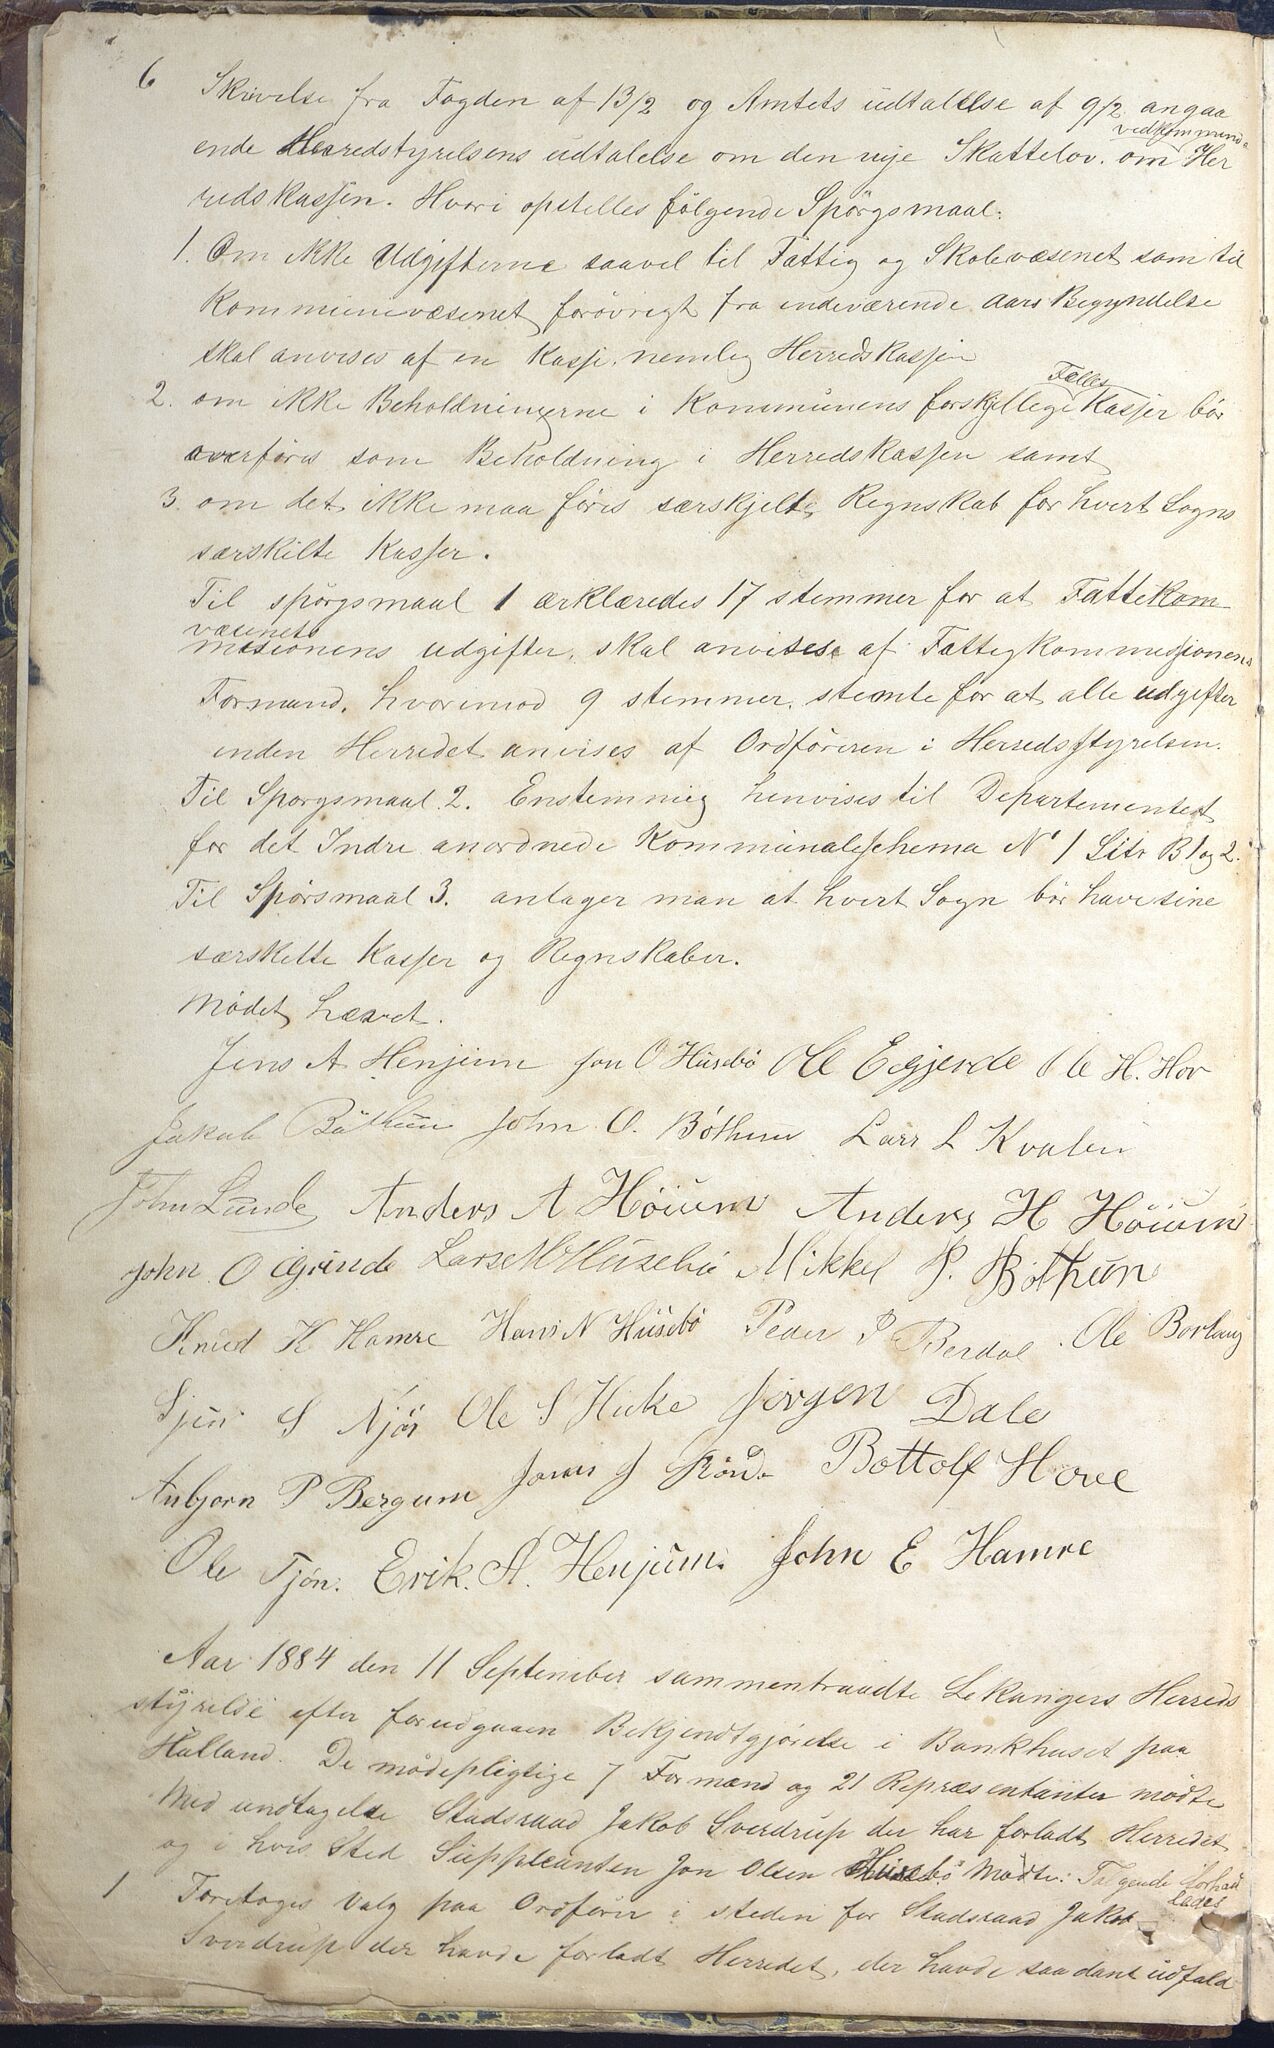 6 Skrivelse fra Fogden af 13/2 og Amtets udtalelse af 9/2 angaa
ende Herredstyrelsens udtalelse om den nye Skattelov. vedkommende om Her
redskassen. Hvori opstelles følgende Spørgsmaal:
1. Om ikke Udgifterne saavel til Fattig og Skolevæsenet som til
Kommunevæsenet forøvrigt fra indeværende Aars Begyndelse
skal anvises af en Kasse, nemlig Herredskassen
2. om ikke Beholdningerne i Kommunens forskjellige Fælles Kasser bør
overføres som Beholdning i Herredskassen samt
3. om det ikke maa føres særskjelte Regnskab for hvert Sogns
særskilte Kasser.
Til spørgsmaal 1 erklæredes 17 stemmer for at Fattekom
væsenets
misionens udgifter, skal anvises af Fattigkommissionens
Formand, hvorimod 9 stemmer, stemte for at alle udgifter
inden Herredet anvises af Ordføreren i Herredsstyrelsen.
Til Sporgsmaal 2. Enstemmig henvises til Departementet
for det Indre anordnede Kommunaleschema N° 1 Litr B 1 og 2.
Til Spørsmaal 3. antager man at hvert Sogn bør have sine
særskelte Kasser og Regnskaber.
Mødet hævet.
Jens A Henjum Jon O Husebö Ole Eggjerde Ole H. Hov
Jakob Böthun John O. Bøthun Lars L Kvalen
John Lunde Anders A Höium Anders H Höium
John O Grinde Lars M Husebö Mikkel P. Böthun
Knud K Hamre Hans N Husebö Peder P Berdal. Ole Borlaug
S Njös Ole S Hicke Jörgen Dale
Anbjorn P Bergum Jonas J Bottolf Hove
Ole Tjön. Erik. A. Henjum. John E Hamre
Aar 1884 den 11 September sammentraadte Lekangers Herreds
styrelse efter forudgaaen Bekjendtgjørelse i Bankhuset paa
Halland. De mødepligtige 7 Formænd og 21 Repræsentanter mødte
Med undtagelse Stadsraad Jakob Sverdrup der har forladt Herredet
og i hvis Sted Suppleanten Jon Olsen Husebö Mødte: Følgende forhan
lades
1 Foretoges Valg paa Ordfører i steden for Stadsraad Jakob
Sverdrup der havde forladt Herredet, der havde saadant udfald